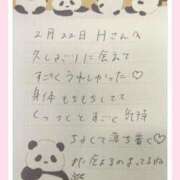 2月22日 Hさんへ
久しぶりに会えて
すごくうれしかった♡
身体もちもちしてて
くっつくとすごく気持
ちよくて落ち着く♡
また会えるのまってるね